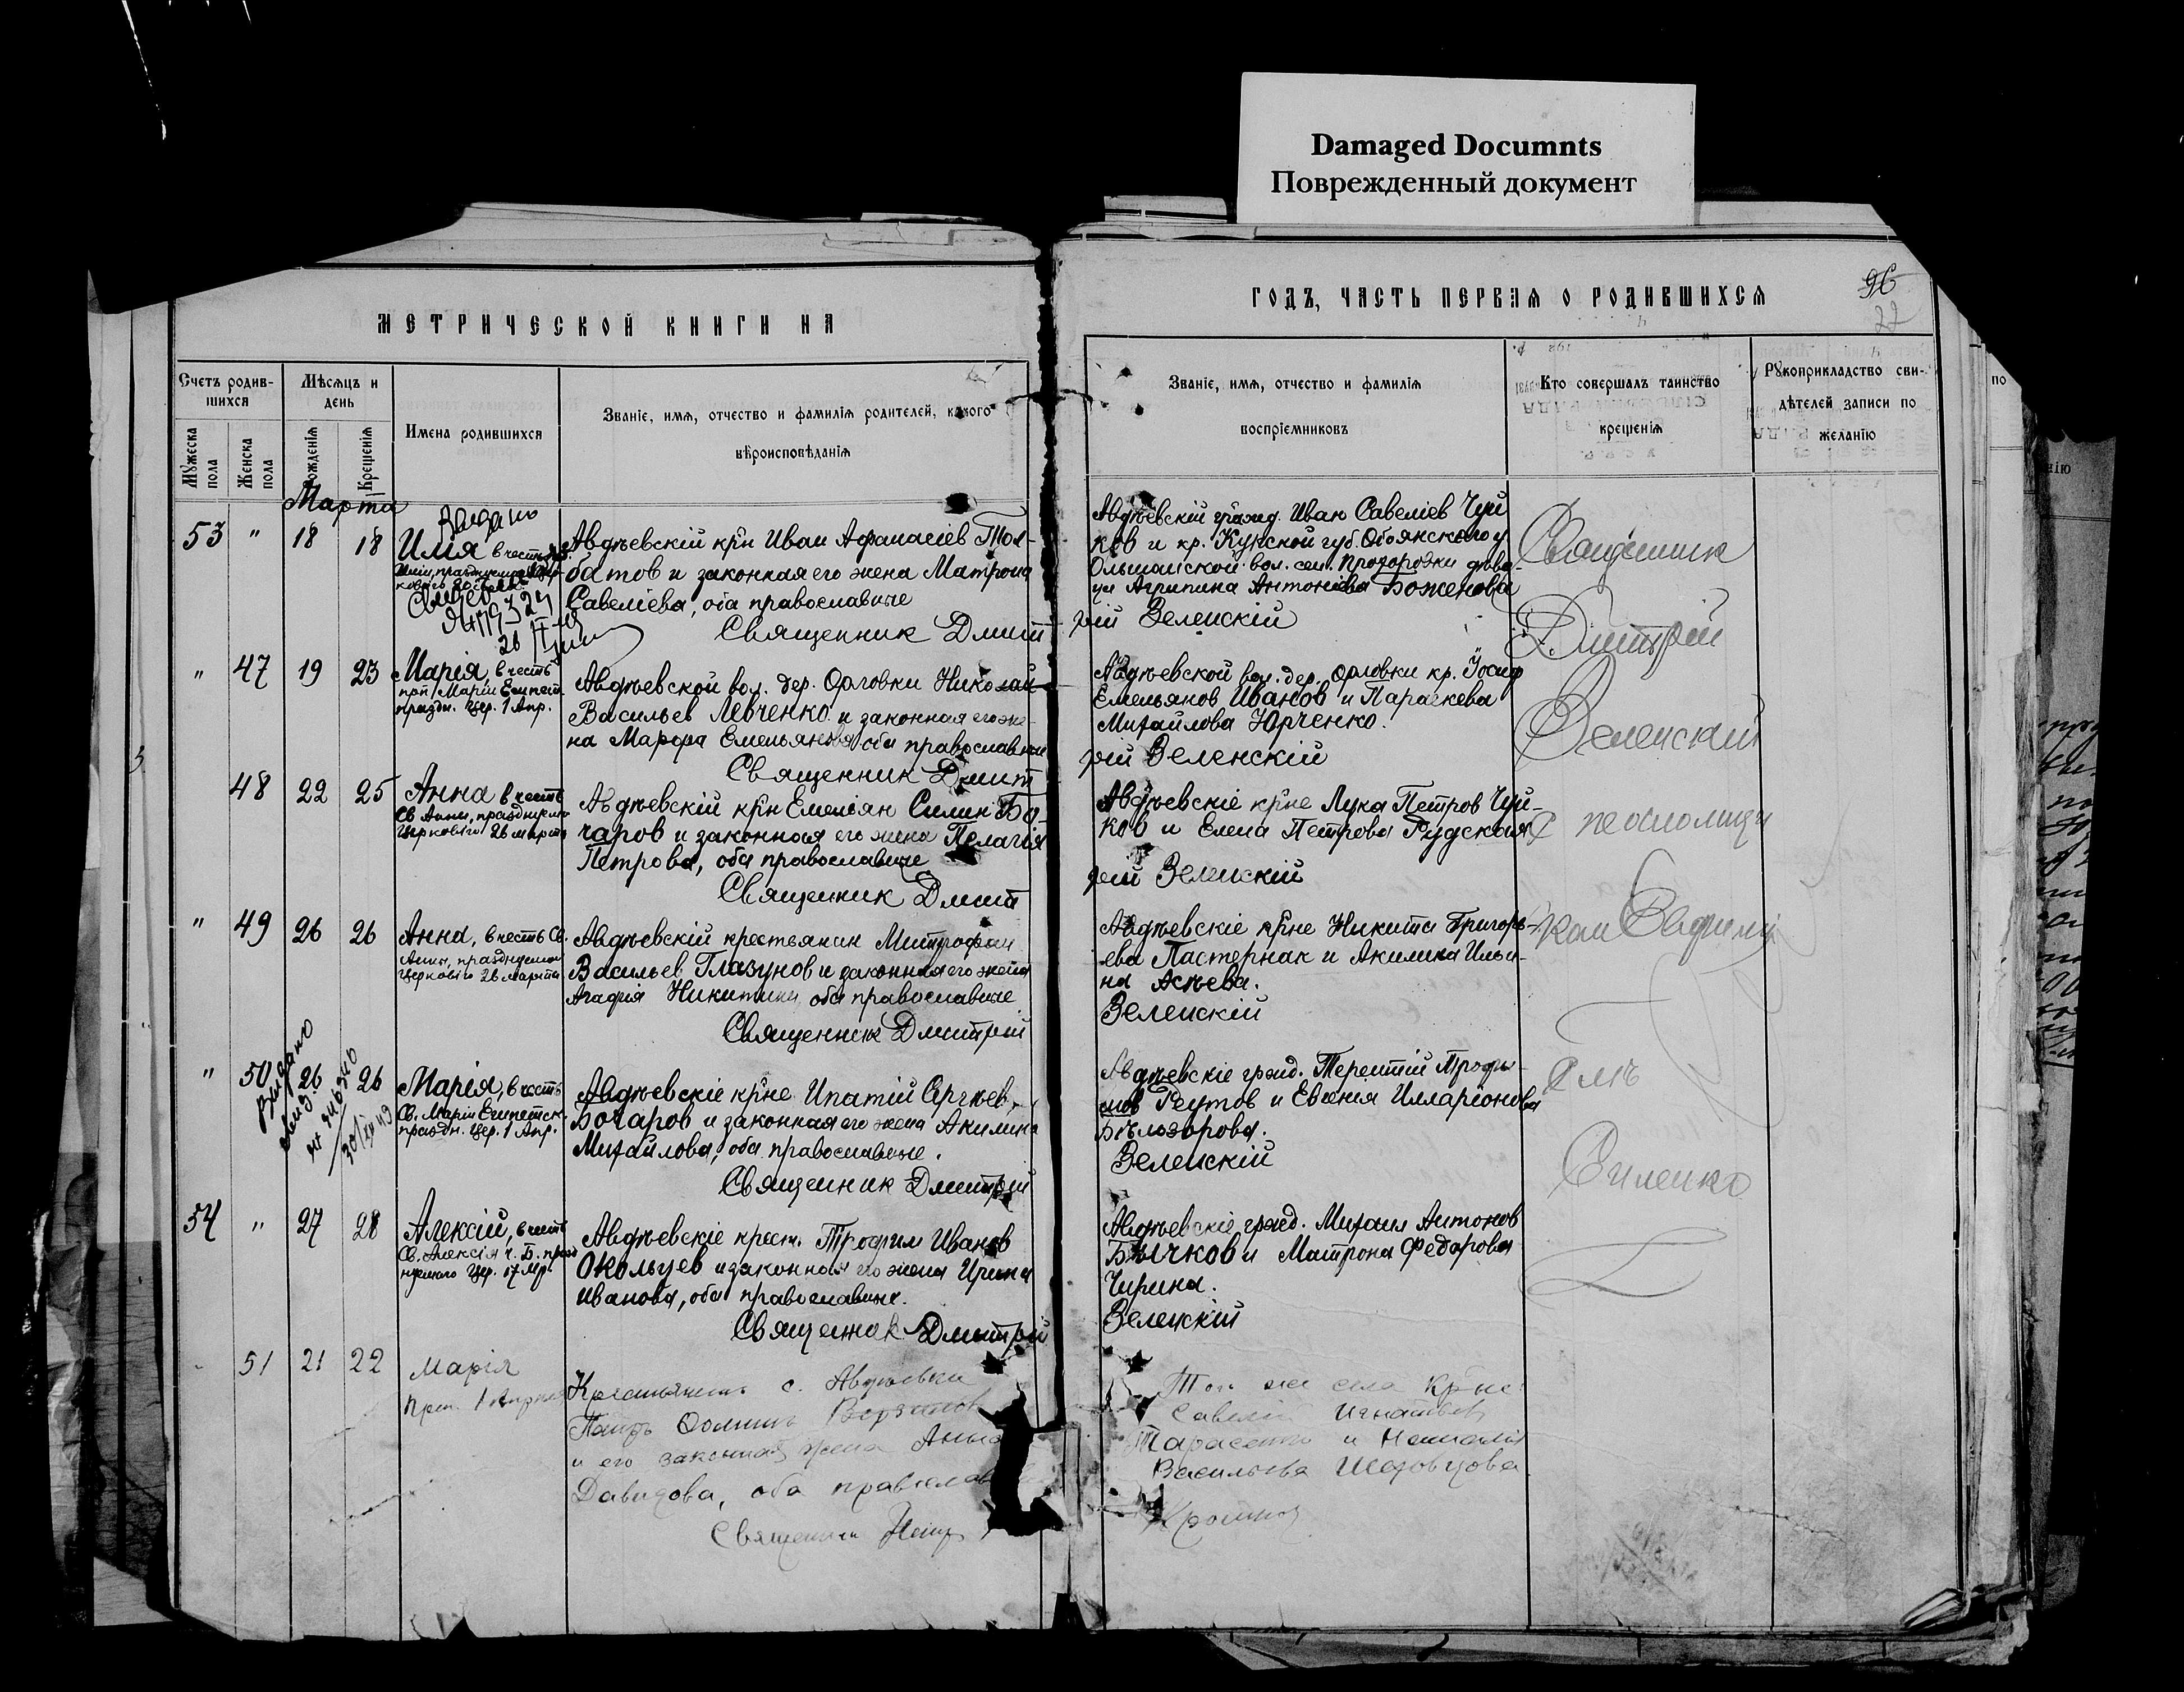 Damaged Documnts
Поврежденный документ
МЕТРИЧЕСКОЙ КНИГИ НА
ГОДЪ, ЧАСТЬ ПЕРВАЯ О РОДИВШИХСЯ
96
22
Счетъ родив-
шихся
Мѣсяцъ и
день
Мужеска
пола
Женска
пола
Рожденія
Крещенія
Имена родившихся
Званіе, имя, отчество и фамилія родителей, какого
вѣроисповѣданія
Званіе, имя, отчество и фамилія
воспріемниковъ
Кто совершалъ таинство
крещенія
Рукоприкладство сви-
дѣтелей записи по
желанію
Марта
53 " 18 18
Илія в честь
Авдѣевскій кр̃н Иван Афанасіев Тол-
батов и законная его жена Матрона
Савеліева, оба православные
Священник Дмит
Авдѣевскій гражд. Иван Савеліев Чуй
ков и кр. Курской губ. Обоянскаго у
Ольшанской вол. сел. Прозоровки дѣви-
ца Агрипина Антоніева Боженова
рій Зеленскій
Священник
Дмитрій
Зеленскій
" 47 19 23
Марія, в честь
прп. Маріи Египет.
праздн. цер. 1 Апр.
Авдѣевской вол. дер. Орловки Николай
Васильев Левченко и законная его же-
на Марфа Емельянова оба православные
Священник Дмит
Авдѣевской вол. дер. Орловки кр. Іосиф
Емельянов Иванов и Параскева
Михайлова Юрченко.
рій Зеленскій
48 22 25
Анна в честь
Св Анны, празднуемой
церковію 26 марта
Авдѣевскій кр̃н Емельян Силин Бо-
чаров и законная его жена Пелагія
Петрова, оба православные
Священник Дмит
Авдѣевскіе кр̃не Лука Петров Чуй-
ков и Елена Петрова Рудская
рій Зеленскій
" 49 26 26
Анна, в честь Св.
Анны, празднуемой
церковію 26 Марта
Авдѣевскій крестьянин Митрофан
Васильев Глазунов и законная его жена
Агафія Никитина, оба православные
Священник Дмитрій
Авдѣевскіе кр̃не Никита Григорь-
ева Пастернак и Акилина Ильи-
на Асѣева.
Зеленскій
" 50 26 26
Марія, в честь
Св. Маріи Египетск.
праздн. цер. 1 Апр.
Авдѣевскіе кр̃не Ипатій Сергѣев
Бочаров и законная его жена Акилина
Михайлова, оба православные.
Священник Дмитрій
Авдѣевскіе гражд. Терентій Трофи-
мов Реутов и Евгенія Илларіонова
Бѣлозорова.
Зеленскій
54 " 27 28
Алексій, в честь
Св. Алексія ч. Б. празд
нуемаго цер. 17 Мр.
Авдѣевскіе крест. Трофим Иванов
Окольцев и законная его жена Ирина
Иванова, оба православные.
Священник Дмитрій
Авдѣевскіе гражд. Михаил Антонов
Бычков и Матрона Федорова
Чирина.
Зеленскій
51 21 22
Марія
1 Апреля
Крестьянинъ с. Авдѣевки
и его законная жена Анна
Давидова, оба православ
Священник Петр
Той же села кр̃не
Савелій Игнатьев
Тарасенко и Наталія
Васильева